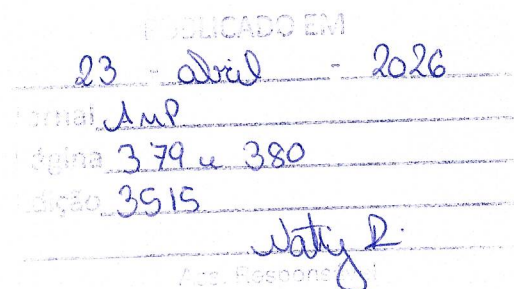 PUBLICADO EM
23 - abril - 2026
Jornal AMP
Página 379 e 380
Edição 3515
Naty R.
Ass. Responsável